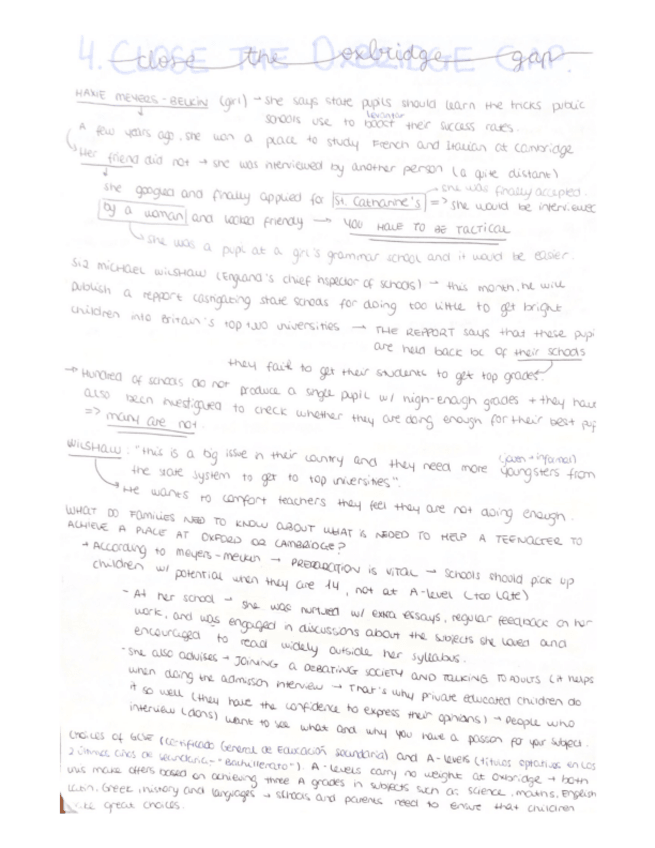 4. CLOSE THE OXBRIDGE GAP.
close the oxbridge gap
HANE MEYERS-BELKIN (girl) → she says state pupils should learn the tricks public
levantar
schools use to boost their success rates.
A few years ago, she won a place to study French and Italian at Cambridge
Her friend did not → she was interviewed by another person (a quite distant)
she googled and finally applied for St. Catharine's → she was finally accepted.
=> she would be interviewed
by a woman and looked friendly → YOU HAVE TO BE TACTICAL
she was a pupil at a girl's grammar school and it would be easier.
SIR MICHAEL WILSHAW (England's chief inspector of schools) → this month, he will
publish a repport castigating state schools for doing too little to get bright
children into Britain's top two universities → THE REPPORT says that these pupi
are held back bc of their schools
they fail to get their students to get top grades.
→ Hundred of schools do not produce a single pupil w/ high-enough grades + they have
also been investigated to check whether they are doing enough for their best pup
=> many are not.
WILSHAW: "this is a big issue in their country and they need more youngsters from
(joven + informal)
the state system to get to top universities".
He wants to comfort teachers they feel they are not doing enough.
WHAT DO FAMILIES NEED TO KNOW ABOUT WHAT IS NEEDED TO HELP A TEENAGER TO
ACHIEVE A PLACE AT OXFORD OR CAMBRIDGE?
→ According to meyers- → PREPARATION IS VITAL → schools should pick up
children w/ potential when they are 14, not at A-level (too late)
- At her school → she was nurtured w/ extra essays, regular feedback on her
work, and was engaged in discussions about the subjects she loved and
encouraged to read widely outside her syllabus.
- she also advises → JOINING A DEBATING SOCIETY AND TALKING TO ADULTS (it helps
when doing the admission interview → That's why private educated children do
it so well (they have the confidence to express their opinions) → People who
interview (dons) want to see what and why you have a passion for your subject.
Choices of GCSE (Certificado General de Educación secundaria) and A-levels (títulos optativos en los
2 últimos años de secundaria - "Bachillerato"). A-levels carry no weight at oxbridge → both
unis make offers based on achieving three A grades in subjects such as: science, maths, English
Latin, Greek, history and languages → schools and parents need to ensure that children
great choices.